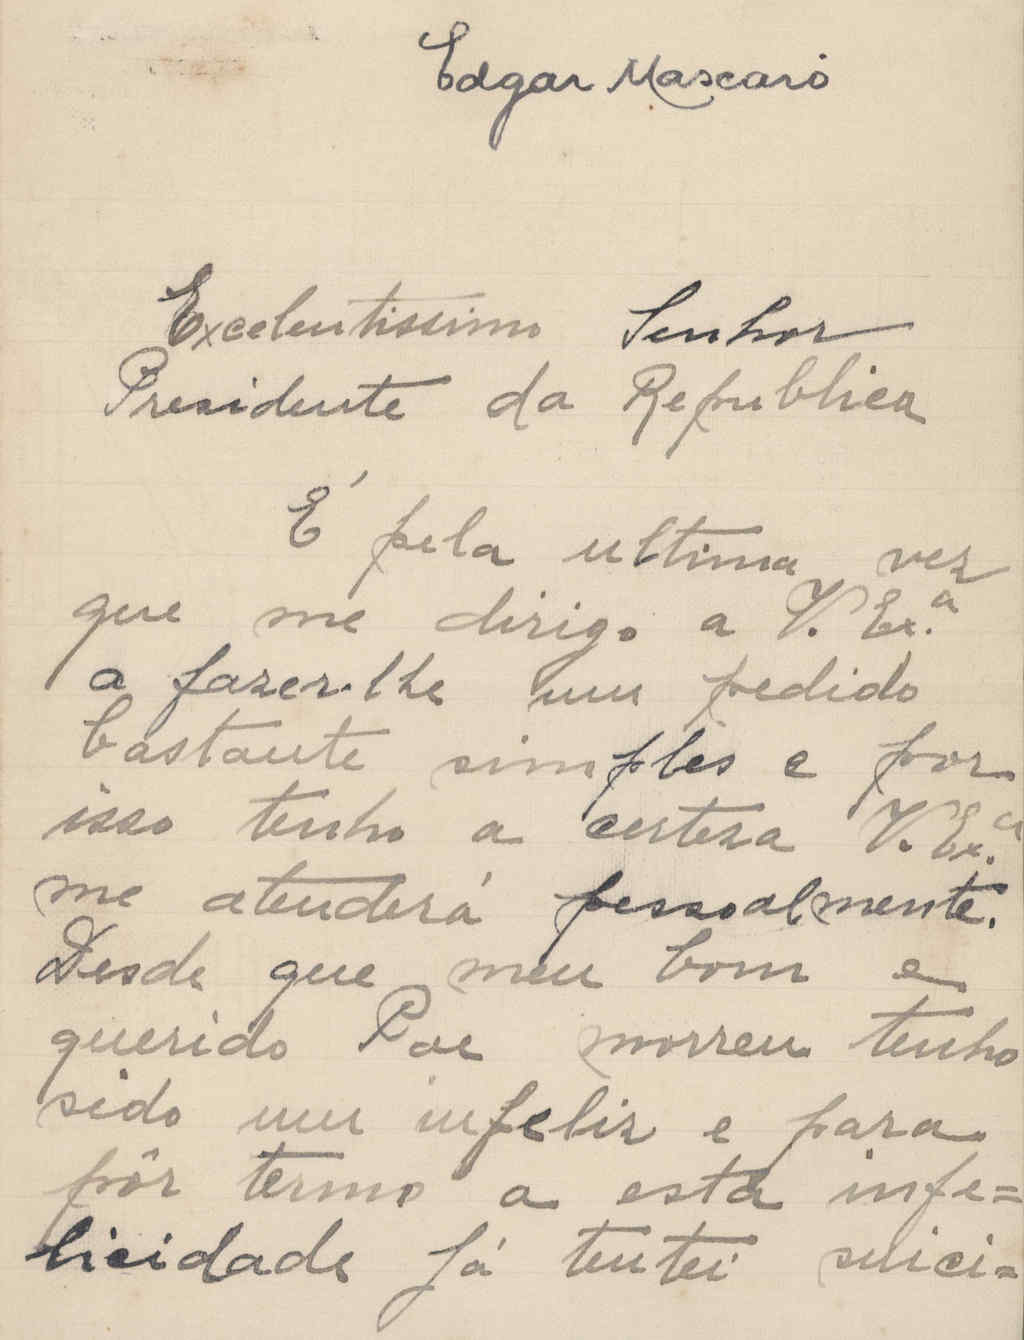 Edgar Mascaró
Excelentissimo Senhor
Presidente da Republica
É pela ultima vez
que me dirigo a V. Ex.ª
a fazer-lhe um pedido
bastante simples e por
isso tenho a certeza V. Ex.ª
me atenderá pessoalmente.
Desde que meu bom e
querido Pae morreu tenho
sido um infeliz e para
pôr termo a esta infe=
licidade já tentei suici=